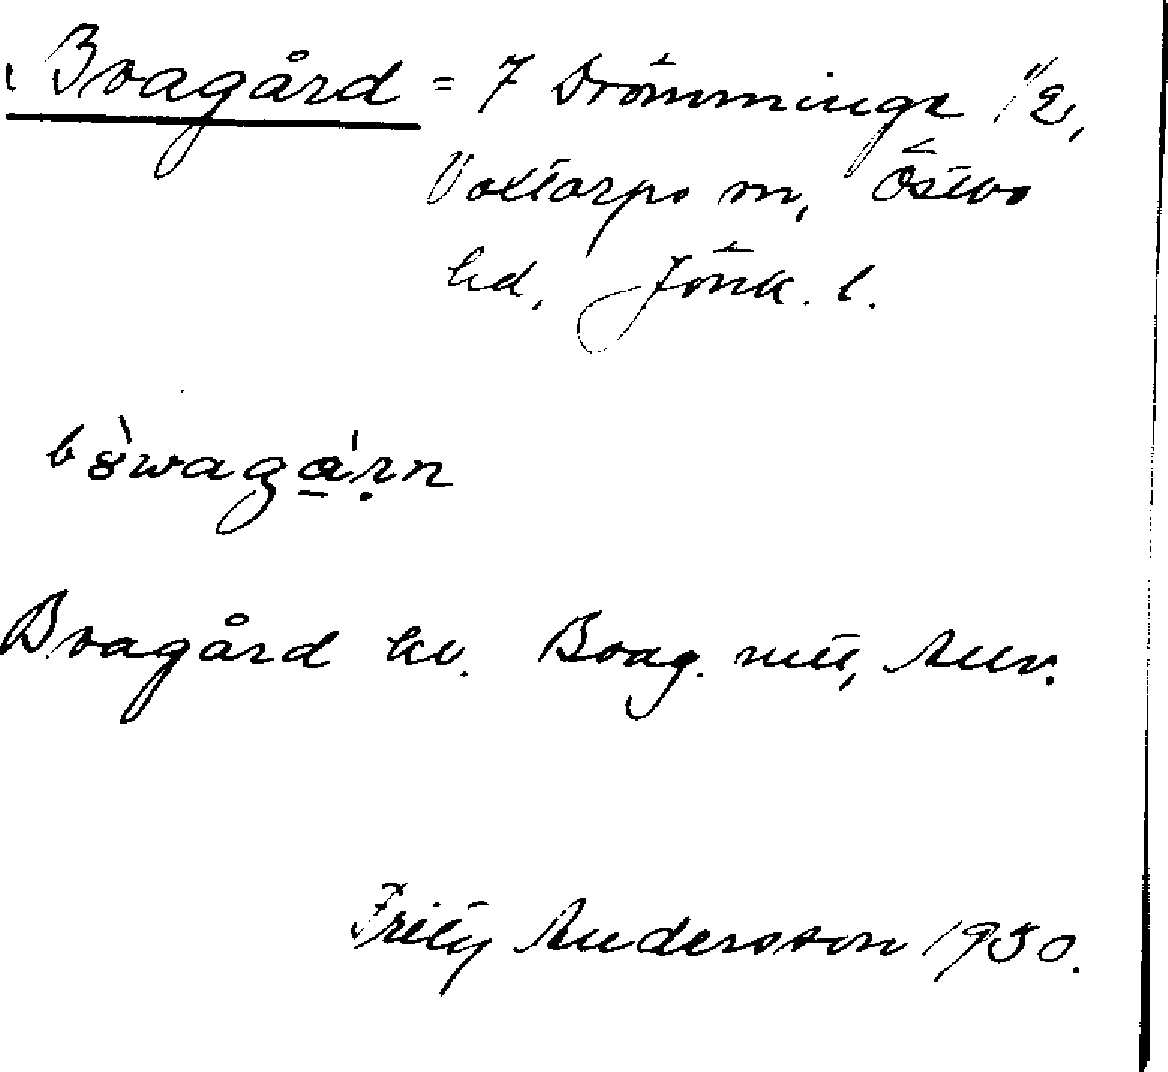 Boagård = 7 Drömminge 1/2,
Voxtorps sn, Östbo
hd, Jönk. l.
bówagá̱ṛn
Boagård hv. Boag. mtl, Anv.
Fritz Andersson 1930.